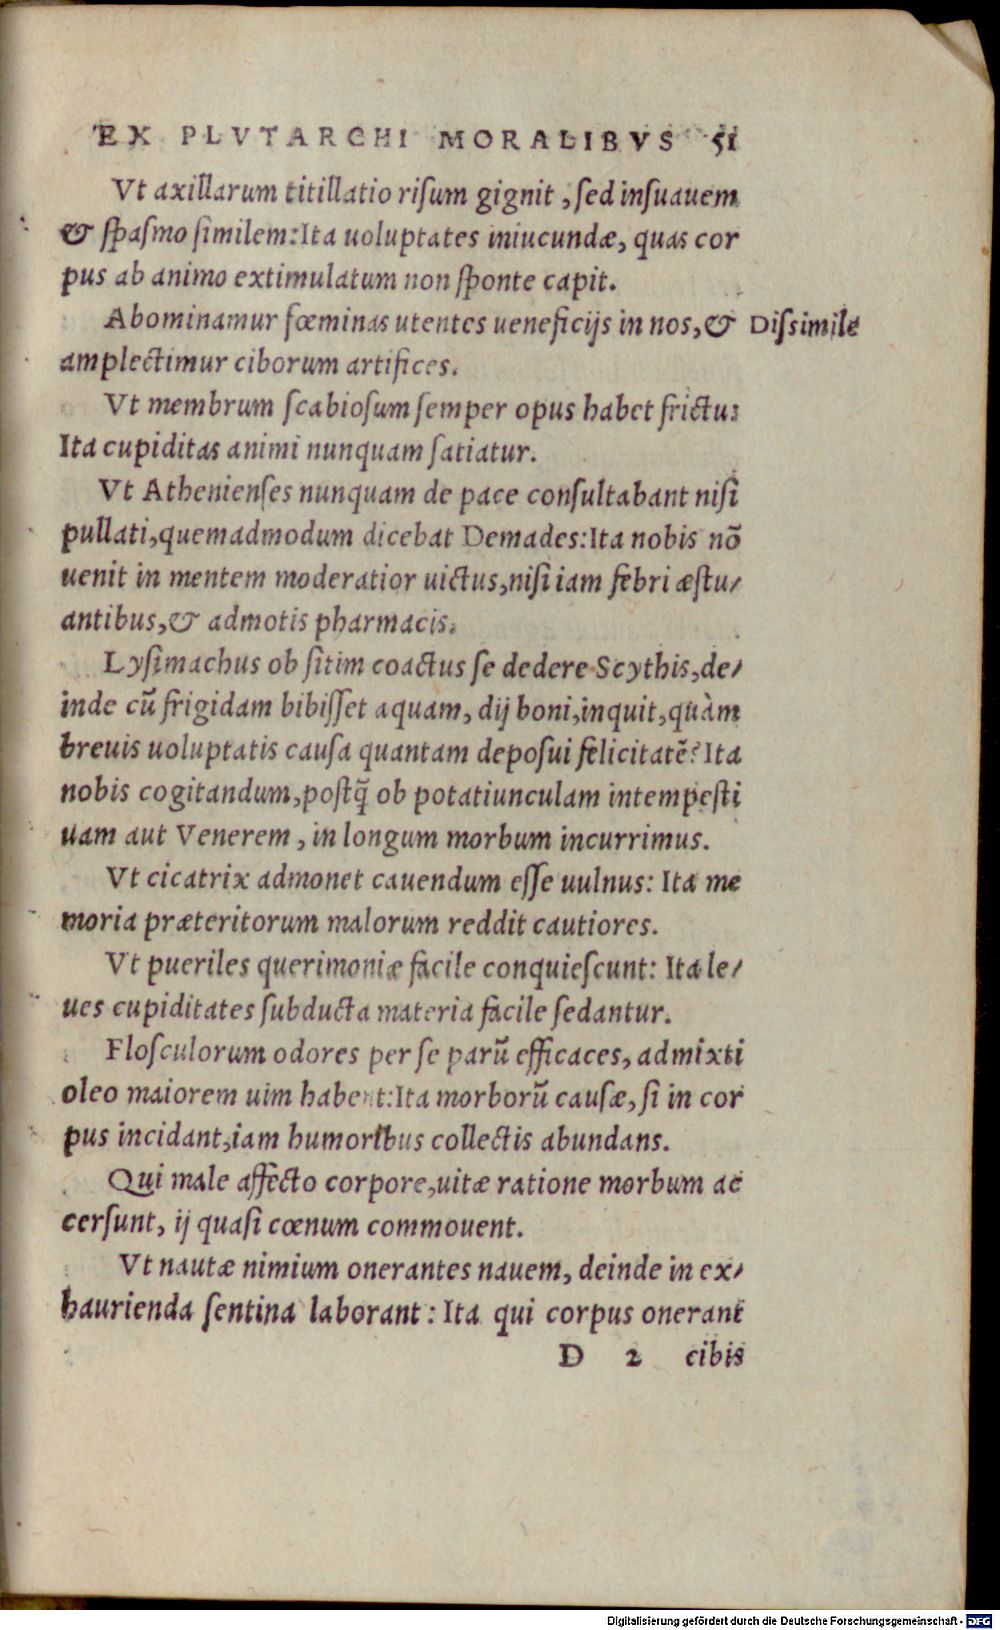 EX PLVTARCHI MORALIBVS 51
Vt axillarum titillatio risum gignit, sed insuauem
& spasmo similem: Ita uoluptates iniucundæ, quas cor
pus ab animo extimulatum non sponte capit.
Abominamur fœminas utentes ueneficijs in nos, & Dissimile
amplectimur ciborum artifices.
Vt membrum scabiosum semper opus habet frictu:
Ita cupiditas animi nunquam satiatur.
Vt Athenienses nunquam de pace consultabant nisi
pullati, quemadmodum dicebat Demades: Ita nobis nō
uenit in mentem moderatior uictus, nisi iam febri æstu/
antibus, & admotis pharmacis.
Lysimachus ob sitim coactus se dedere Scythis, de/
inde cū frigidam bibisset aquam, dij boni, inquit, quàm
breuis uoluptatis causa quantam deposui felicitatē? Ita
nobis cogitandum, postq̃ ob potatiunculam intempesti
uam aut Venerem, in longum morbum incurrimus.
Vt cicatrix admonet cauendum esse uulnus: Ita me
moria præteritorum malorum reddit cautiores.
Vt pueriles querimoniæ facile conquiescunt: Ita le/
ues cupiditates subducta materia facile sedantur.
Flosculorum odores per se parū efficaces, admixti
oleo maiorem uim habent: Ita morborū causæ, si in cor
pus incidant, iam humoribus collectis abundans.
Qui male affecto corpore, uitæ ratione morbum ac
cersunt, ij quasi cœnum commouent.
Vt nautæ nimium onerantes nauem, deinde in ex/
haurienda sentina laborant: Ita qui corpus onerant
D 2 cibis
Digitalisierung gefördert durch die Deutsche Forschungsgemeinschaft - DFG